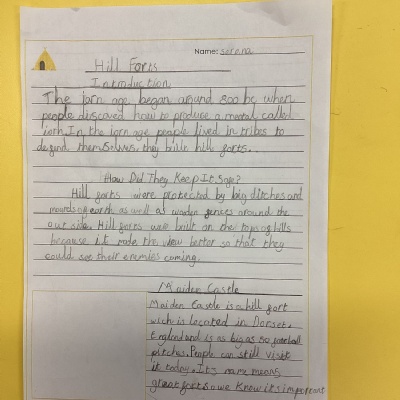 Name: serena
Hill Forts
Introduction
The iorn age began around 800 bc when
people discoverd how to produce a metal called
iorn. In the iorn age people lived in tribes to
defend themselves, they built hill forts.
How Did They Keep It Safe?
Hill forts were protected by big ditches and
mounds of earth as well as wooden fences around the
out side. Hill forts were built on the tops of hills
because it made the view better so that they
could see their enemies coming.
Maiden Castle
Maiden Castle is a hill fort
wich is located in Dorset,
England and is as big as 50 football
pitches. People can still visit
it today. It's name means
great fort so we know it's important